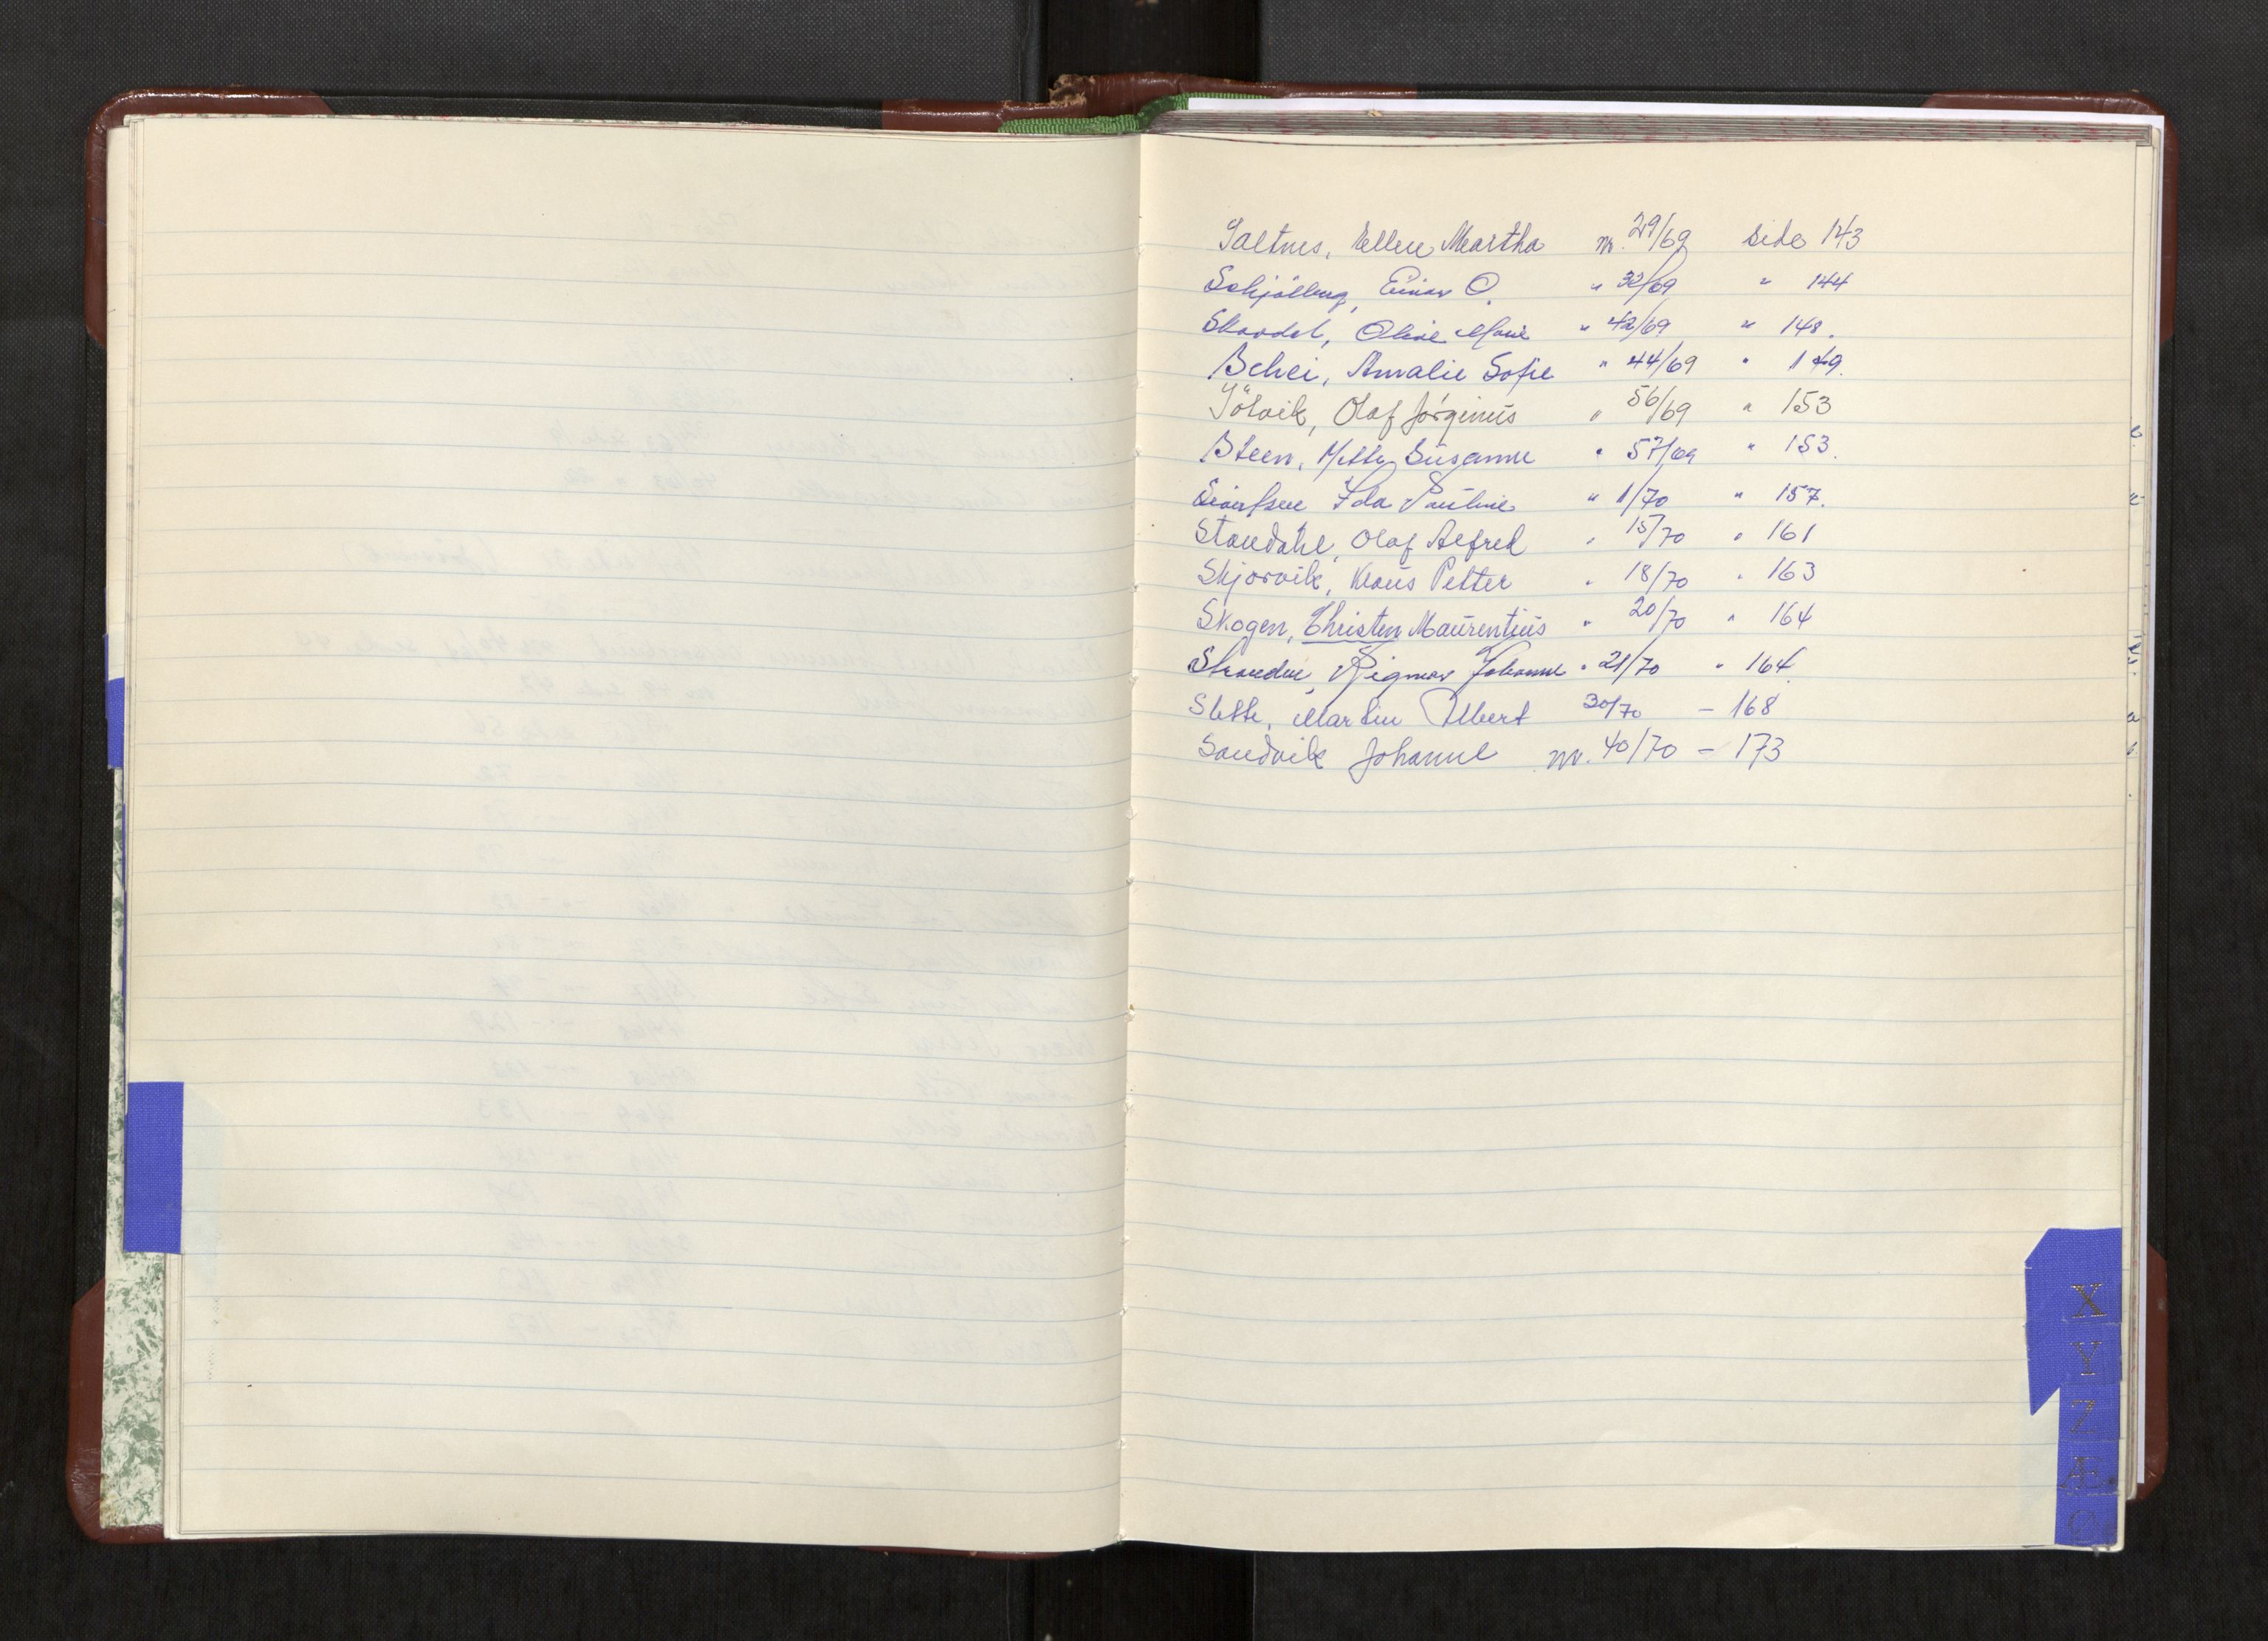 Saltnes, Ellen Martha nr. 29/69 side 143
Schjölberg, Einar O. " 32/69 " 144
Skardal, Oline Marie " 42/69 " 148.
Schei, Amalie Sofie " 44/69 " 149.
Sölvik, Olaf Jörginus " 56/69 " 153
Steen, Mette Susanne " 57/69 " 153.
Ida Pauline " 1/70 " 157.
Standahl, Olaf Alfred " 15/70 " 161
Skjorvik, Klaus Petter " 18/70 " 163
Skogen, Christen Maurentius " 20/70 " 164
Rigmor Johanne " 21/70 " 164.
Slette, Martin Albert 30/70 – 168
Sandvik Johanne nr. 40/70 – 173
X
Y
Z
Æ
Ø